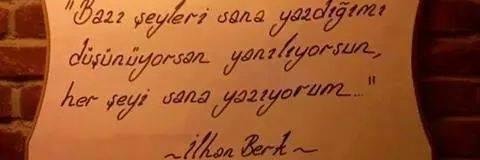 "Bazı şeyleri sana yazdığımı
düşünüyorsan yanılıyorsun,
her şeyi sana yazıyorum..."
~İlhan Berk~